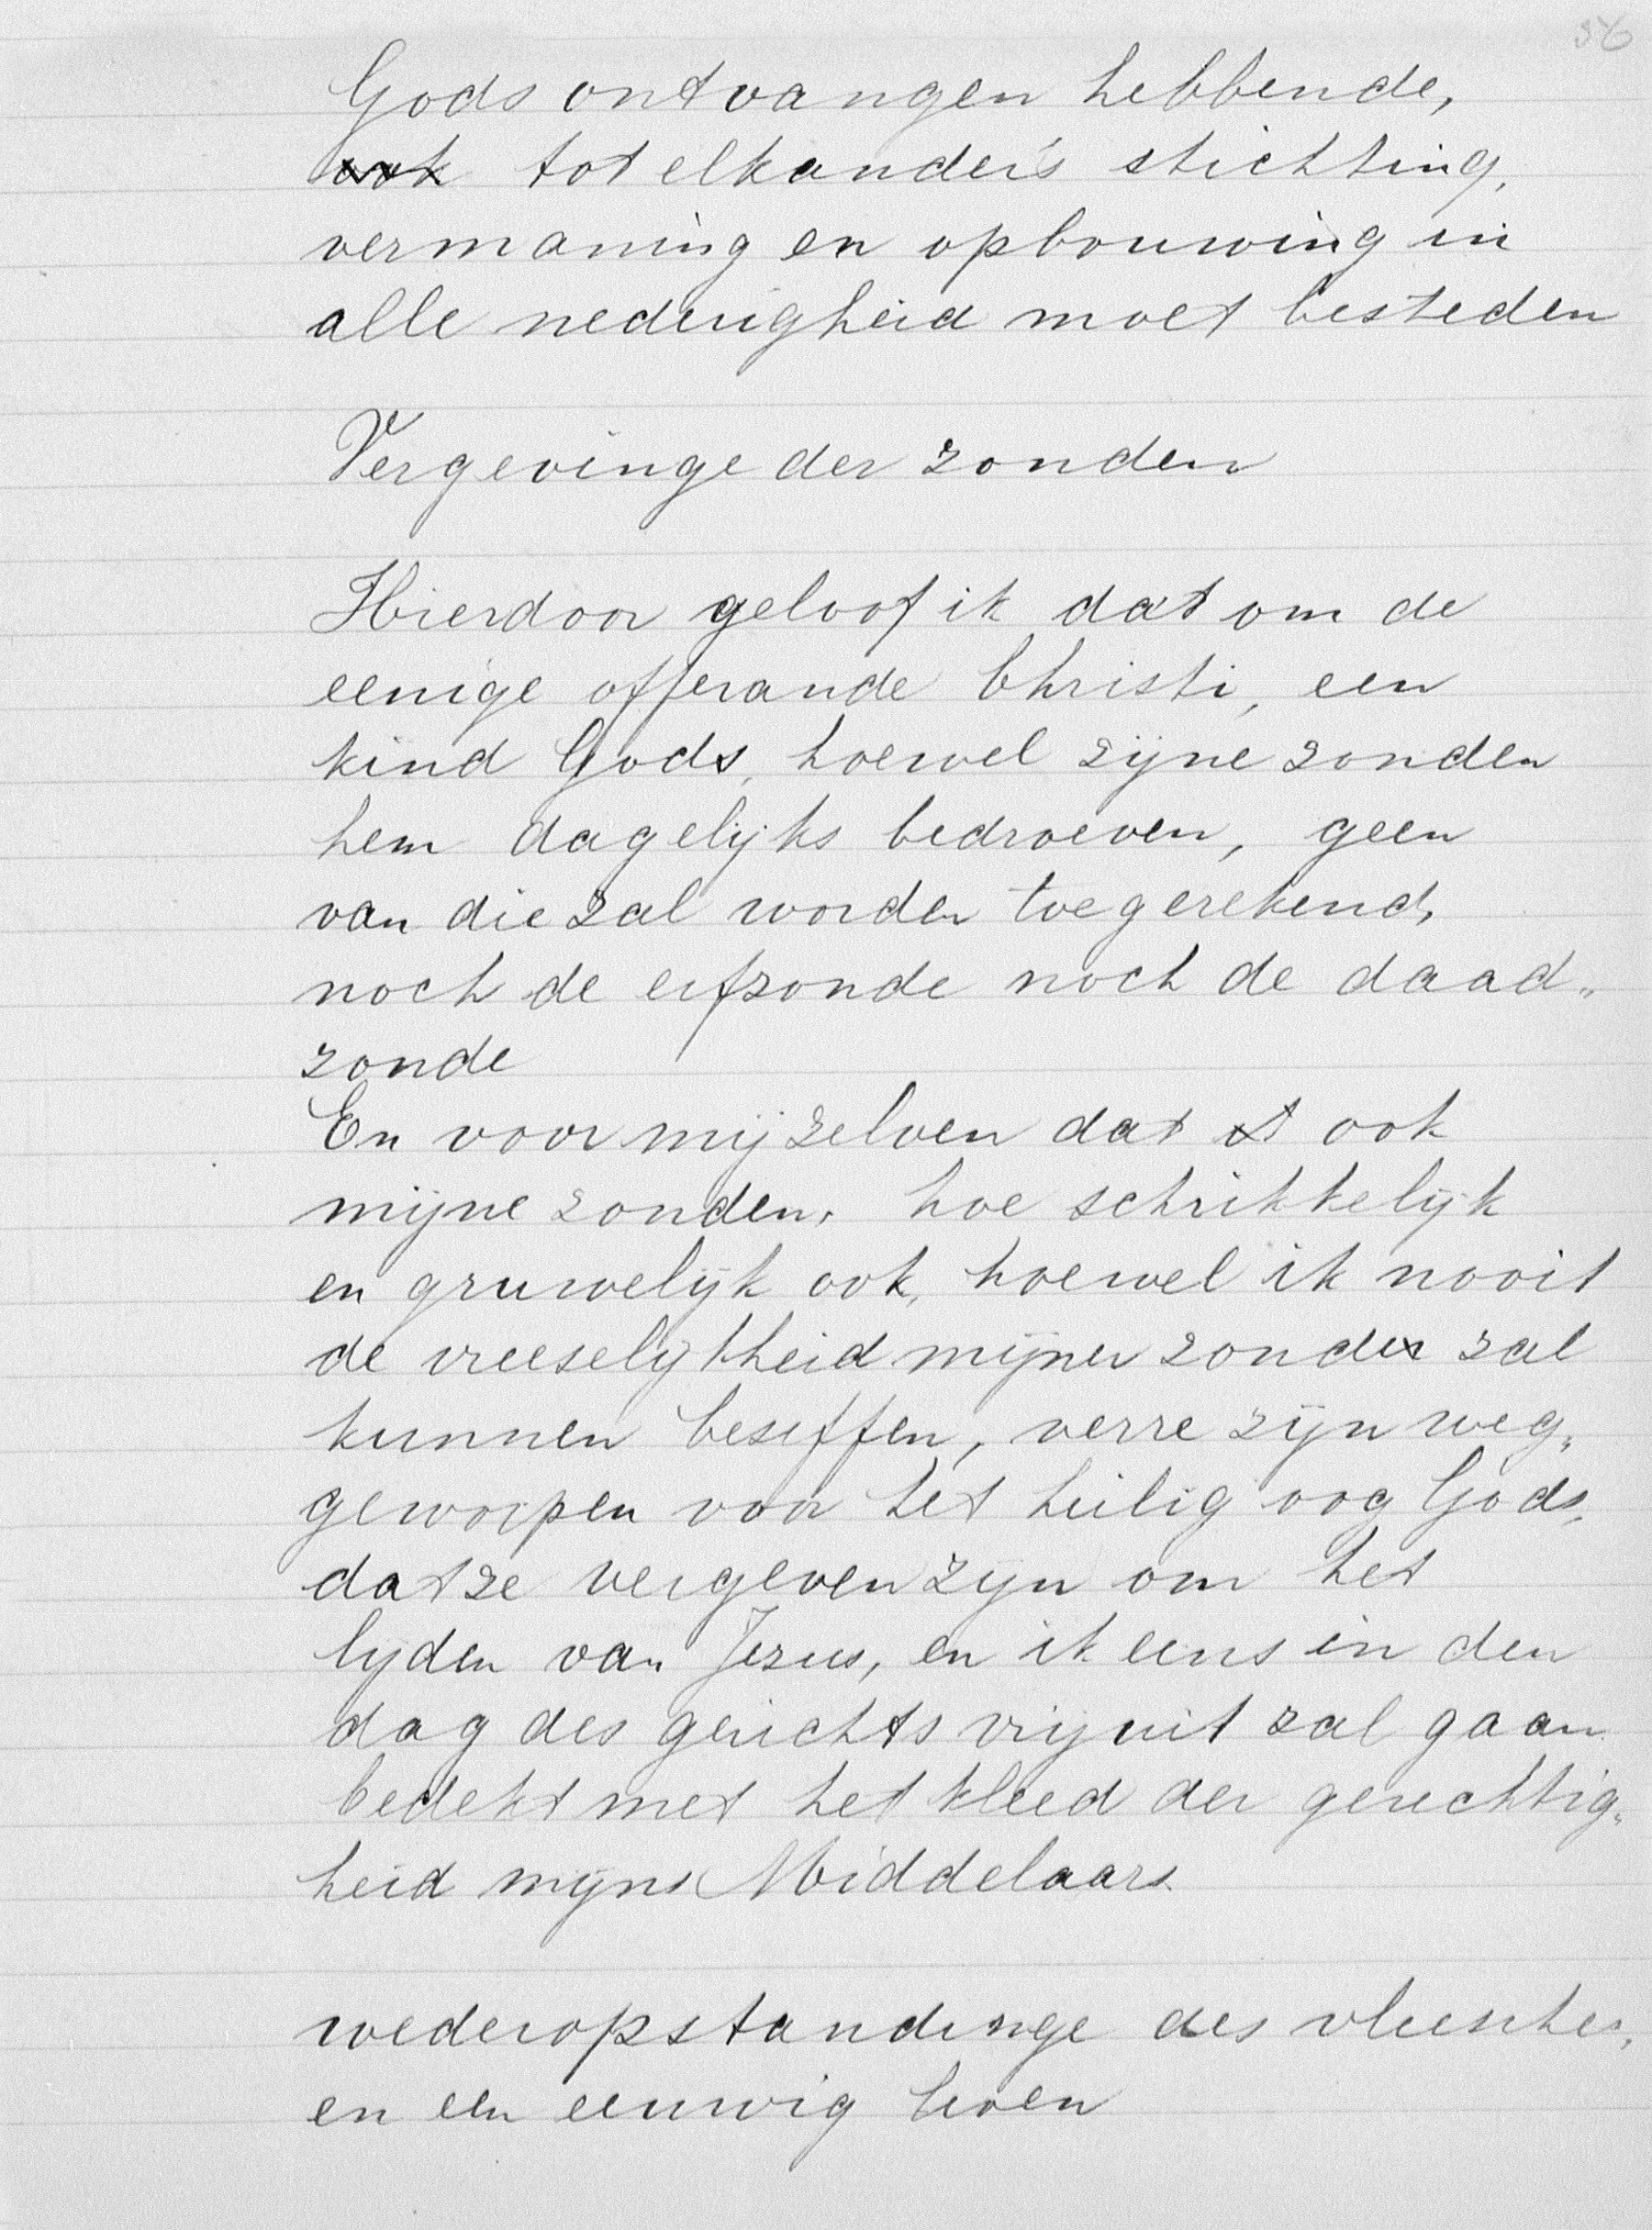 36
Gods ontvangen hebbende,
ook tot elkander's stichting,
vermaning en opbouwing in
alle nederigheid moet besteden
Vergevinge der zonden
Hierdoor geloof ik dat om de
eenige offerande Christi, een
kind Gods, hoewel zijne zonden
hem dagelijks bedroeven, geen
van die zal worden toegerekend,
noch de erfzonde noch de daad„
zonde
En voor mij zelven dat ook
mijne zonden, hoe schrikkelijk
en gruwelijk ook, hoewel ik nooit
de vreeselijkheid mijner zonden zal
kunnen beseffen, verre zijn weg„
geworpen voor het heilig oog Gods,
dat ze vergeven zijn om het
lijden van Jezus, en ik eens in den
dag des gerichts vrijuit zal gaan
bedekt met het kleed der gerechtig„
heid mijns Middelaars.
wederopstandinge des vleesches,
en een eeuwig leven